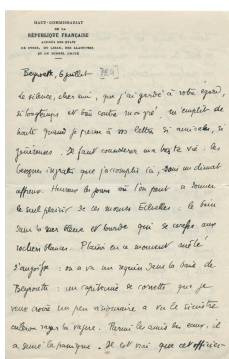 HAUT-COMMISSARIAT
DE LA
RÉPUBLIQUE FRANÇAISE
AUPRÈS DES ÉTATS
DE SYRIE, DU LIBAN, DES ALAOUITES
ET DU DJEBEL DRUZE
Beyrouth, 6 juillet
Le silence, cher ami, que j'ai gardé à votre égard,
si longtemps et bien contre mon gré, m'emplit de
honte quand je pense à vos lettres si amicales, si
généreuses. Il faut considérer ma triste vie : les
besognes ingrates que j'accomplis ici, dans un climat
affreux. Heureux les jours où l'on peut se donner
le seul plaisir de ces mornes Echelles : le bain
dans la mer bleue et lourde qui se caresse aux
rochers blancs. Plaisir en ce moment mêlé
d'angoisse : on a vu un requin dans la baie de
Beyrouth : un capitaine de corvette que je
veux croire un peu visionnaire a vu le sinistre
aileron rayer la vague. Parmi les amis des eaux, il
a semé la panique. Il est vrai que cet officier